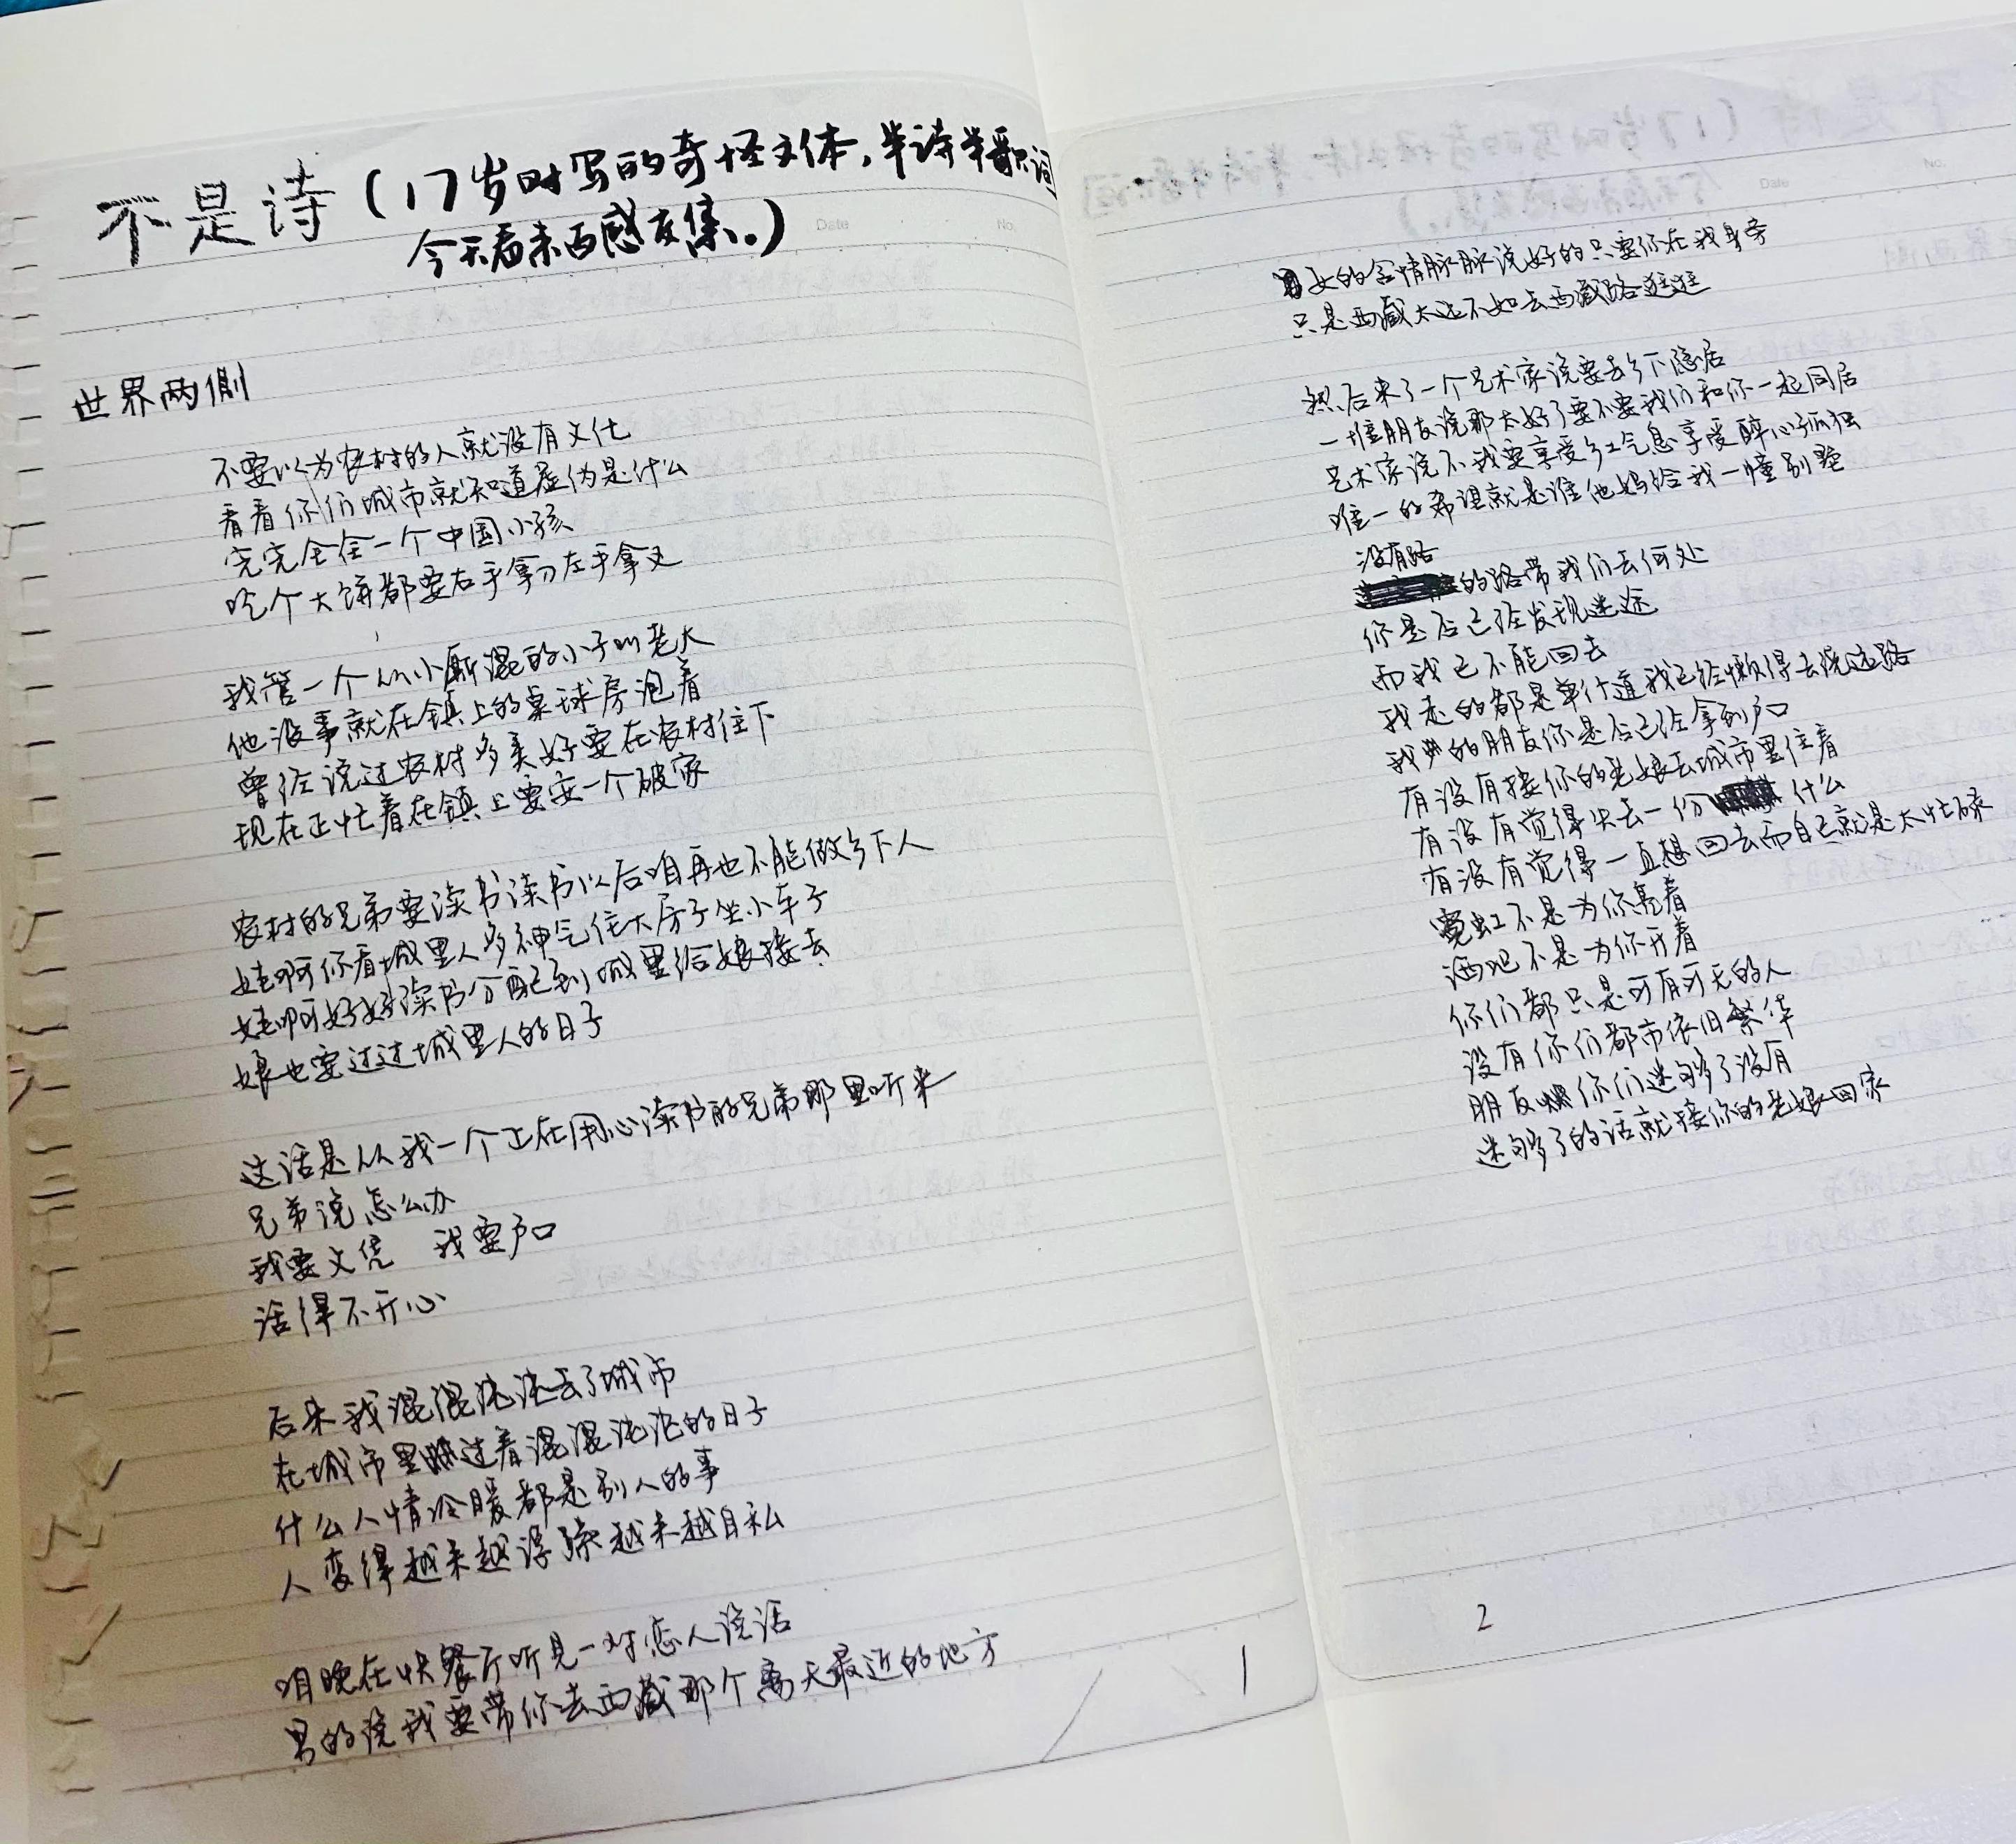 不是诗（17岁时写的奇怪文体，半诗半歌词
今天看来百感交集。）
Date
No.
世界两侧
不要以为农村的人就没有文化
看看你们城市就知道虚伪是什么
完完全全一个中国小孩
吃个大饼都要右手拿刀左手拿叉
我管一个从小厮混的小子叫老大
他没事就在镇上的桌球房泡着
曾经说过农村多美好要在农村住下
现在正忙着在镇上要安一个破家
农村的兄弟要读书读书以后咱再也不能做乡下人
娃啊你看城里人多神气住大房子坐小车子
娃啊好好读书分配到城里给娘接去
娘也要过过城里人的日子
这话是从我一个正在用心读书的兄弟那里听来
兄弟说怎么办
我要文凭 我要户口
活得不开心
后来我混混沌沌去了城市
在城市里过着混混沌沌的日子
什么人情冷暖都是别人的事
人变得越来越浮躁越来越自私
咱晚在快餐厅听见一对恋人说话
男的说我要带你去西藏那个离天最近的地方
1
Date
No.
女的含情脉脉说好的只要你在我身旁
只是西藏太远不如去西藏路逛逛
然后来了一个艺术家说要去乡下隐居
一堆朋友说那太好了要不要我们和你一起同居
艺术家说不我要享受乡土气息享受醉心孤独
唯一的希望就是谁他妈给我一幢别墅
没有路
的路带我们去何处
你是否已经发现迷途
而我已不能回去
我走的都是单行道我已经懒得去绕远路
我的朋友你是否已经拿到户口
有没有接你的老娘去城市里住着
有没有觉得失去一份什么
有没有觉得一直想回去而自己就是太忙碌
霓虹不是为你亮着
酒吧不是为你开着
你们都只是可有可无的人
没有你们都市依旧繁华
朋友你们迷够了没有
迷够了的话就接你的老娘回家
2